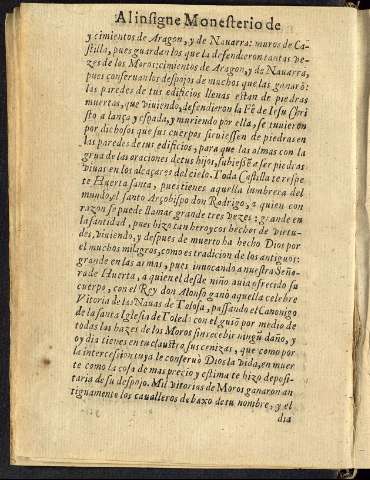 Al insigne Monesterio de
y cimientos de Aragon, y de Nauarra: muros de Ca-
stilla, pues guardan los que la defendieron tantas ve-
zes de los Moros: cimientos de Aragon, y de Nauarra,
pues conseruan los despojos de muchos que las ganarō:
las paredes de tus edificios lleuas estan de piedras
muertas, que viuiendo, defendieron la Fè de Iesu Chri
sto a lança y espada, y muriendo por ella, se tuuieron
por dichosos que sus cuerpos siruiessen de piedras en
las paredes de tus edificios, para que las almas con la
grua de las oraciones de tus hijos, subiessē a ser piedras
viuas en los alcaçares del cielo. Toda Castilla te respe
te Huerta santa, pues tienes aquella lumbrera del
mundo, el santo Arçobispo don Rodrigo, a quien con
razon se puede llamar grande tres vezes: grande en
la santidad, pues hizo tan heroycos hechos de virtu-
des, viuiendo, y despues de muerto ha hecho Dios por
el muchos milagros, como es tradicion de los antiguos:
grande en las armas, pues inuocando a nuestra Seño-
ra de Huerta, a quien el desde niño auia ofrecido su
cuerpo, con el Rey don Alonso ganò aquella celebre
Vitoria de las Nauas de Tolosa, passando el Canonigo
de la santa Iglesia de Toledo: con el guiō por medio de
todas las hazes de los Moros sin recebir ningū daño, y
oy dia tienes en tu claustro sus cenizas, que como por
la intercession tuya le conseruò Dios la vida, en muer
te como la cosa de mas precio y estima te hizo deposi-
taria de su despojo. Mil vitorias de Moros ganaron an
tiguamente los caualleros debaxo de tu nombre, y el
dia